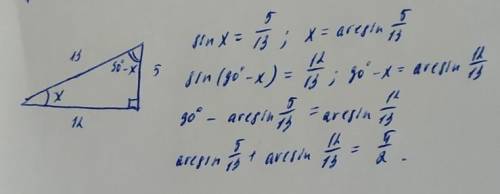 13
90°-x
5
x
12
sin x = 5/13 ; x = arcsin 5/13
sin(90°-x) = 12/13 ; 90°-x = arcsin 12/13
90° - arcsin 5/13 = arcsin 12/13
arcsin 5/13 + arcsin 12/13 = π/2 .